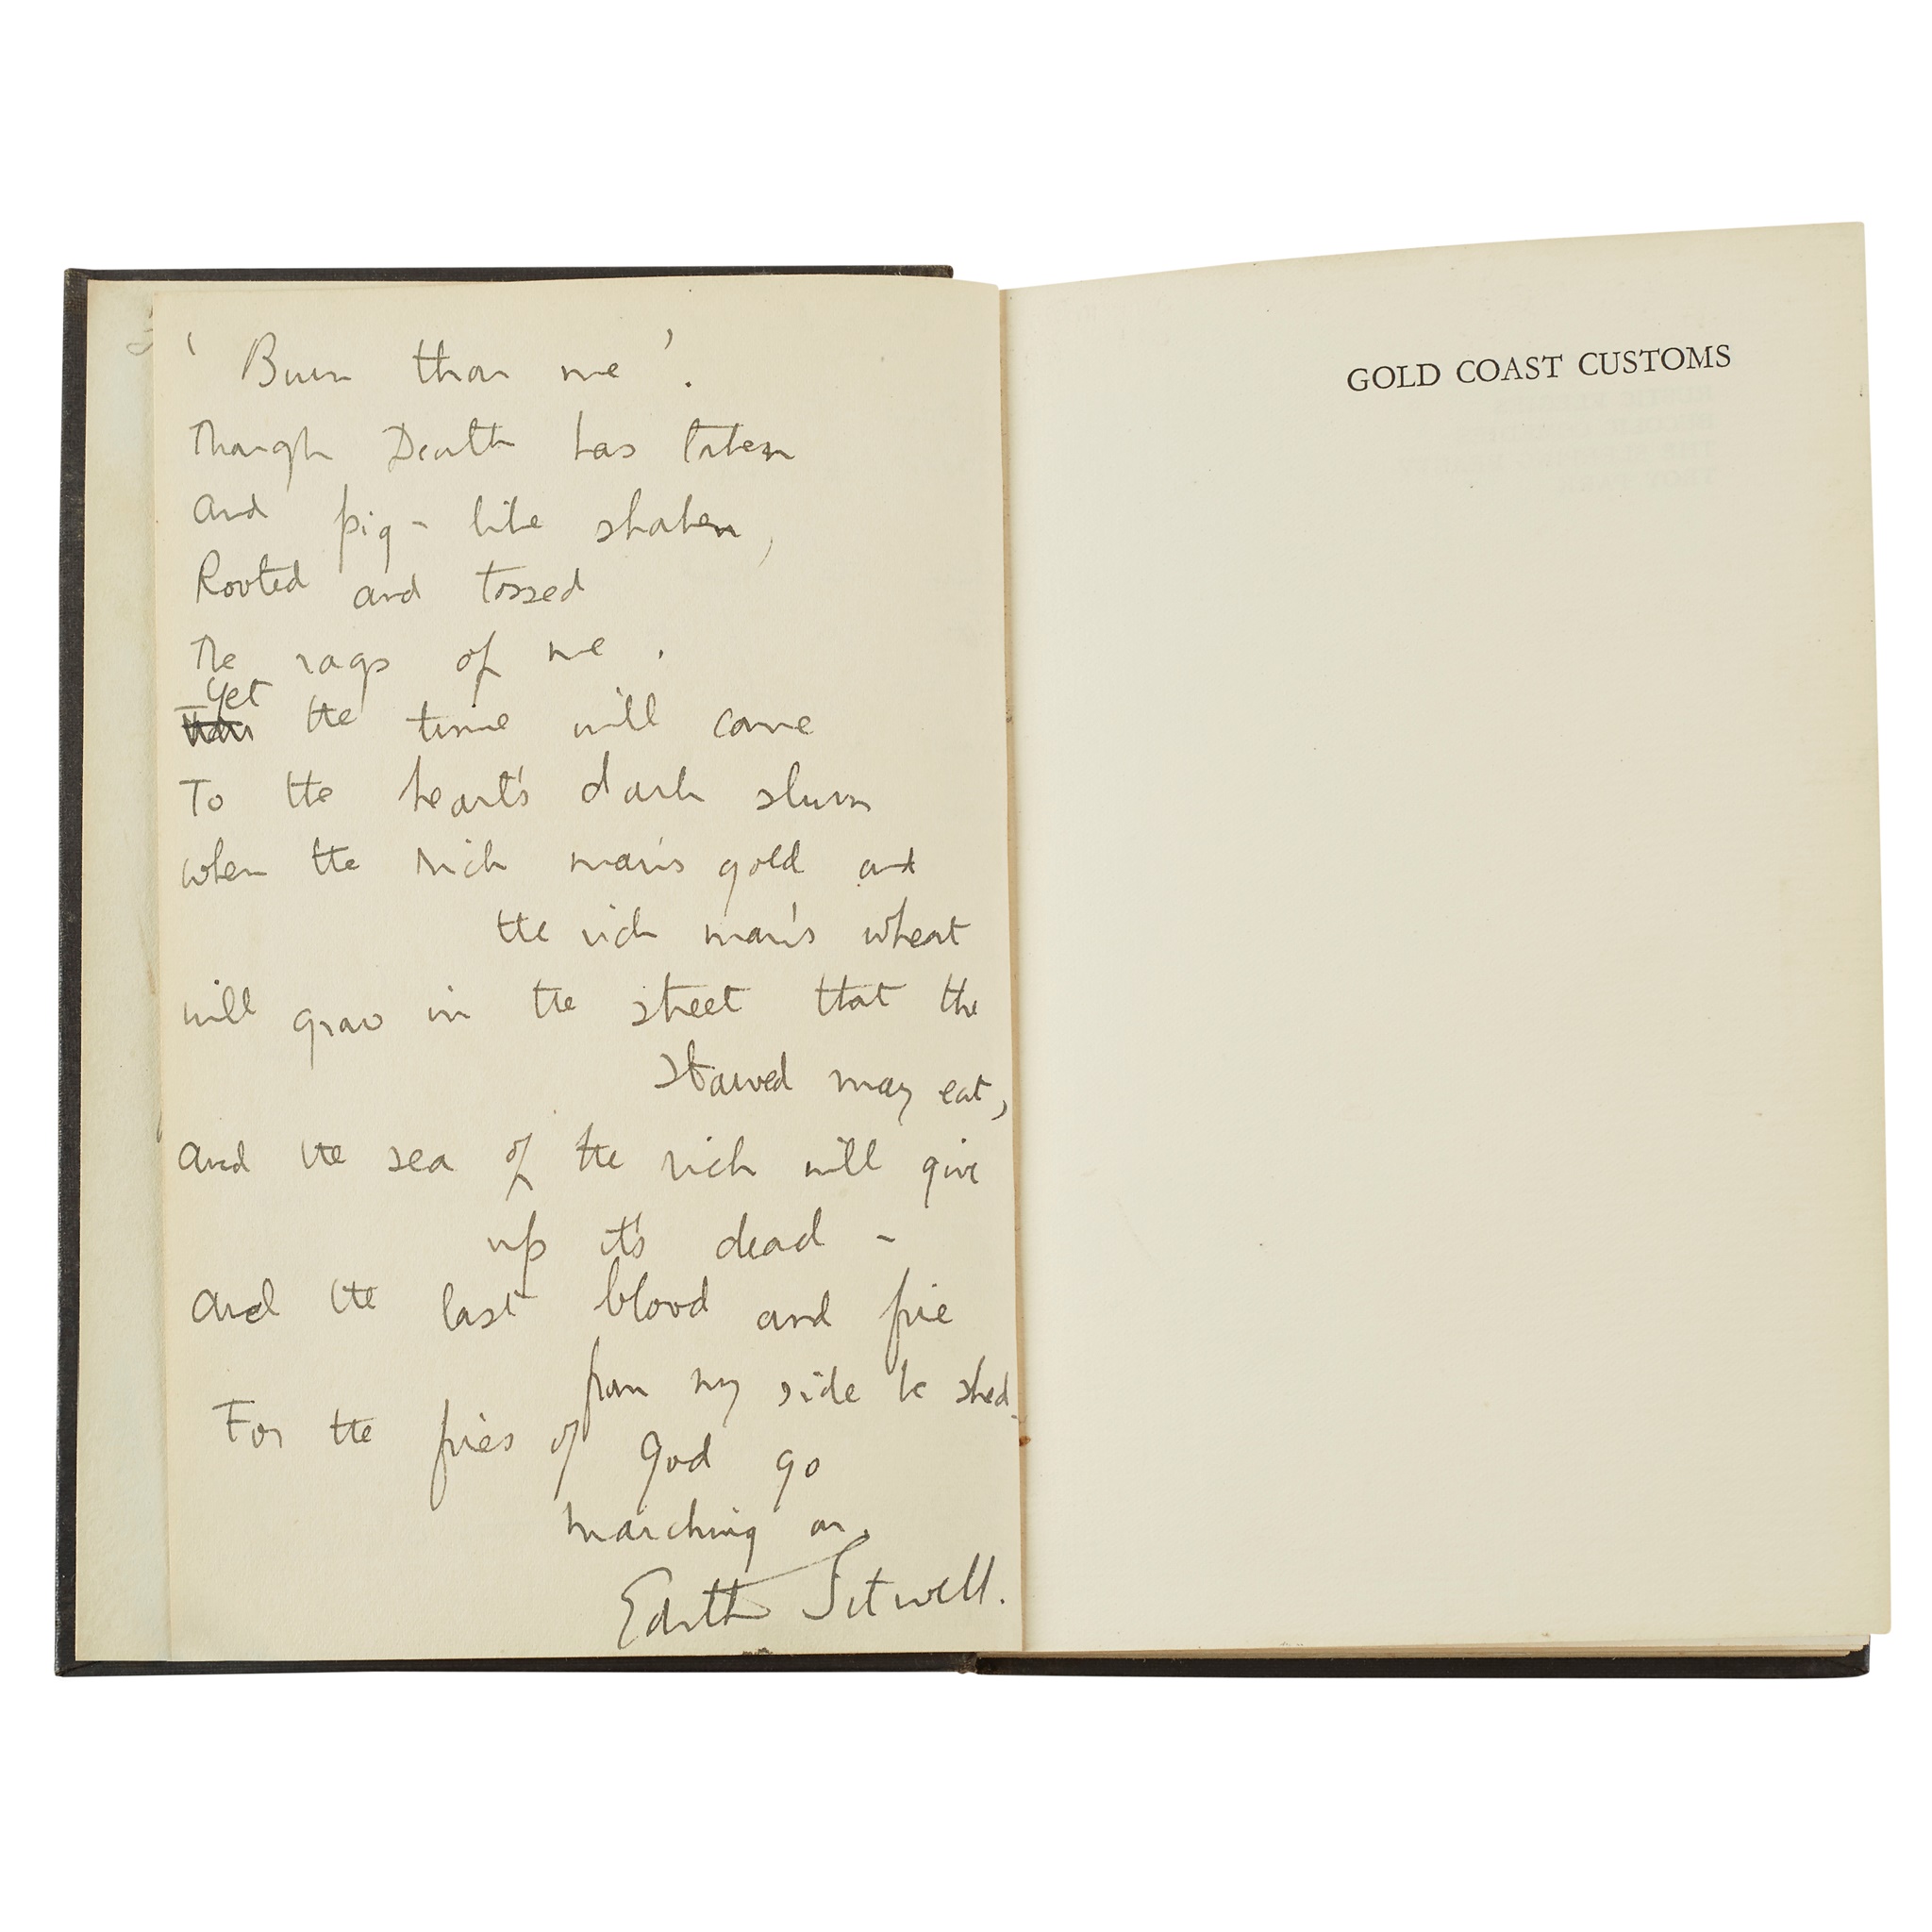 ' Burn thou me '.
Though Death has taken
And pig-like shaken,
Rooted and tossed
The rags of me.
Yet
the time will come
To the heart's dark slum
when the rich man's gold and
the rich man's wheat
will grow in the street that the
starved may eat,
And the sea of the rich will give
up it's dead -
And the last blood and fire
from my side be shed.
For the fires of God go
marching on.
Edith Sitwell.
GOLD COAST CUSTOMS